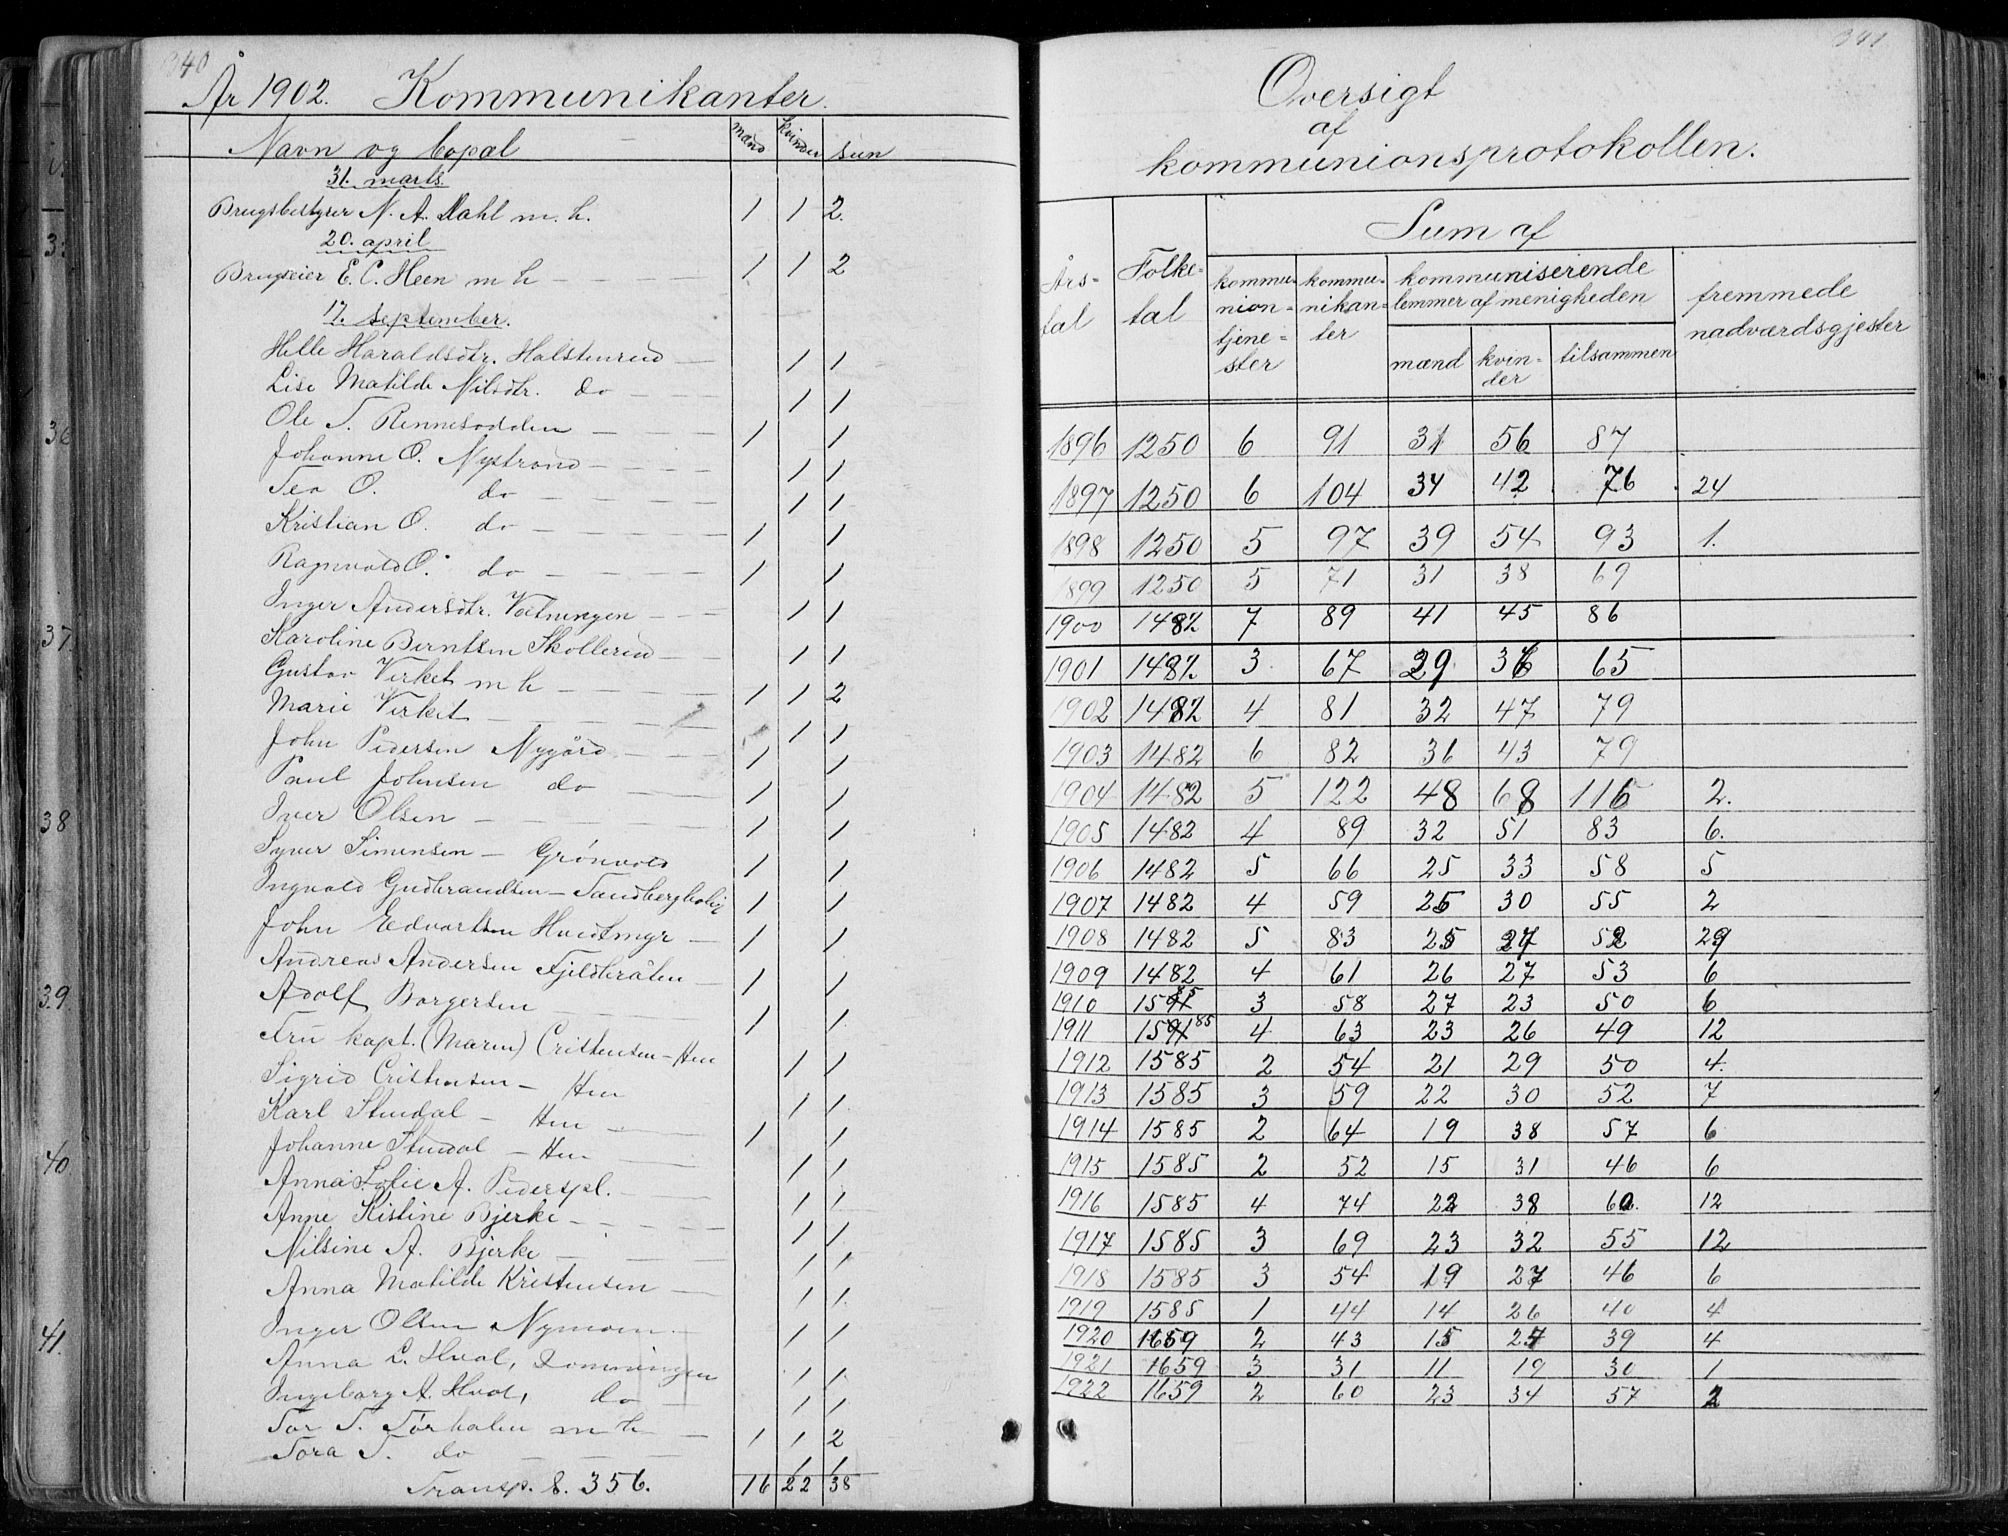 340
År 1902. Kommunikanter.
Navn og bopæl mænd kvinder sum
31. marts.
Brugsbestyrer N. A. Dahl m. h. 1 1 2.
20. april
Brugseier E. C. Heen m h — 1 1 2
17. september.
Hille Haraldsdtr. Halstenrud — 1 1
Lise Matilde Nilsdtr. do — 1 1
Ole T. Rennesodden — 1 1
Johanne O. Nystrand — 1 1
Tea O. do — 1 1
Kristian O. do — 1 1
Ragnvald O. do — 1 1
Inger Andersdtr. Vætningen — 1 1
Karoline Berntsen Skollerud — 1 1
Gustav Virket m h — 1 1 2
Marie Virket — 1 1
John Pedersen Nygård — 1 1
Paul Johnsen do — 1 1
Iver Olsen — 1 1
Syver Simensen — Grønvold 1 1
Ingvald Gudbrandsen — Sandbergbolig 1 1
John Edvartsen Hvidtmyr — 1 1
Andreas Andersen Fjeldbråten — 1 1
Adolf Borgersen 1 1
Fru kapt. (Maren) Cristensen — Hen 1 1
Sigrid Cristensen — Hen 1 1
Karl Stendal — Hen 1 1
Johanne Stendal — Hen 1 1
Anna Sofie A. Pederspl. — 1 1
Anne Kistine Bjerke — 1 1
Nilsine A. Bjerke — 1 1
Anna Matilde Kristensen — 1 1
Inger Olsen Nymoen — 1 1
Anna L. Hval, Domningen 1 1
Ingeborg A. Hval, do 1 1
Tor T. Tørhalen m h — 1 1 2
Tora T. do 1 1
Transp. S. 356. 16 22 38
341
Oversigt
af
kommunionsprotokollen.
Sum af
Års-tal Folke-tal kommu-nion-tjene-ster kommu-nikan-ter kommuniserende lemmer af menigheden fremmede nadværdsgjester
mænd kvin-der tilsammen
1896 1250 6 91 31 56 87
1897 1250 6 104 34 42 76 24
1898 1250 5 97 39 54 93 1.
1899 1250 5 71 31 38 69
1900 1482 7 89 41 45 86
1901 1482 3 67 29 36 65
1902 1482 4 81 32 47 79
1903 1482 6 82 36 43 79
1904 1482 5 122 48 68 116 2.
1905 1482 4 89 32 51 83 6.
1906 1482 5 66 25 33 58 5
1907 1482 4 59 25 30 55 2
1908 1482 5 83 25 27 52 29
1909 1482 4 61 26 27 53 6
1910 1585 3 58 27 23 50 6
1911 1591 85 4 63 23 26 49 12
1912 1585 2 54 21 29 50 4.
1913 1585 3 59 22 30 52 7
1914 1585 2 64 19 38 57 6
1915 1585 2 52 15 31 46 6
1916 1585 4 74 22 38 60. 12
1917 1585 3 69 23 32 55 12
1918 1585 3 54 19 27 46 6
1919 1585 1 44 14 26 40 4
1920 1659 2 43 15 24 39 4
1921 1659 3 31 11 19 30 1
1922 1659 2 60 23 34 57 2
36
37.
38
39.
40
41.